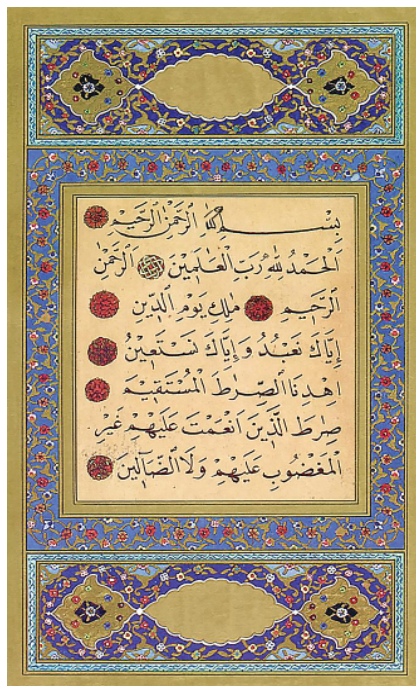 بِسْمِ اللّٰهِ الرَّحْمٰنِ الرَّحٖيمِ
اَلْحَمْدُ لِلّٰهِ رَبِّ الْعَالَمٖينَ اَلرَّحْمٰنِ
الرَّحٖيمِ مَالِكِ يَوْمِ الدّٖينِ
اِيَّاكَ نَعْبُدُ وَاِيَّاكَ نَسْتَعٖينُ
اِهْدِنَا الصِّرَاطَ الْمُسْتَقٖيمَ
صِرَاطَ الَّذٖينَ اَنْعَمْتَ عَلَيْهِمْ غَيْرِ
الْمَغْضُوبِ عَلَيْهِمْ وَلَا الضَّٓالّٖينَ